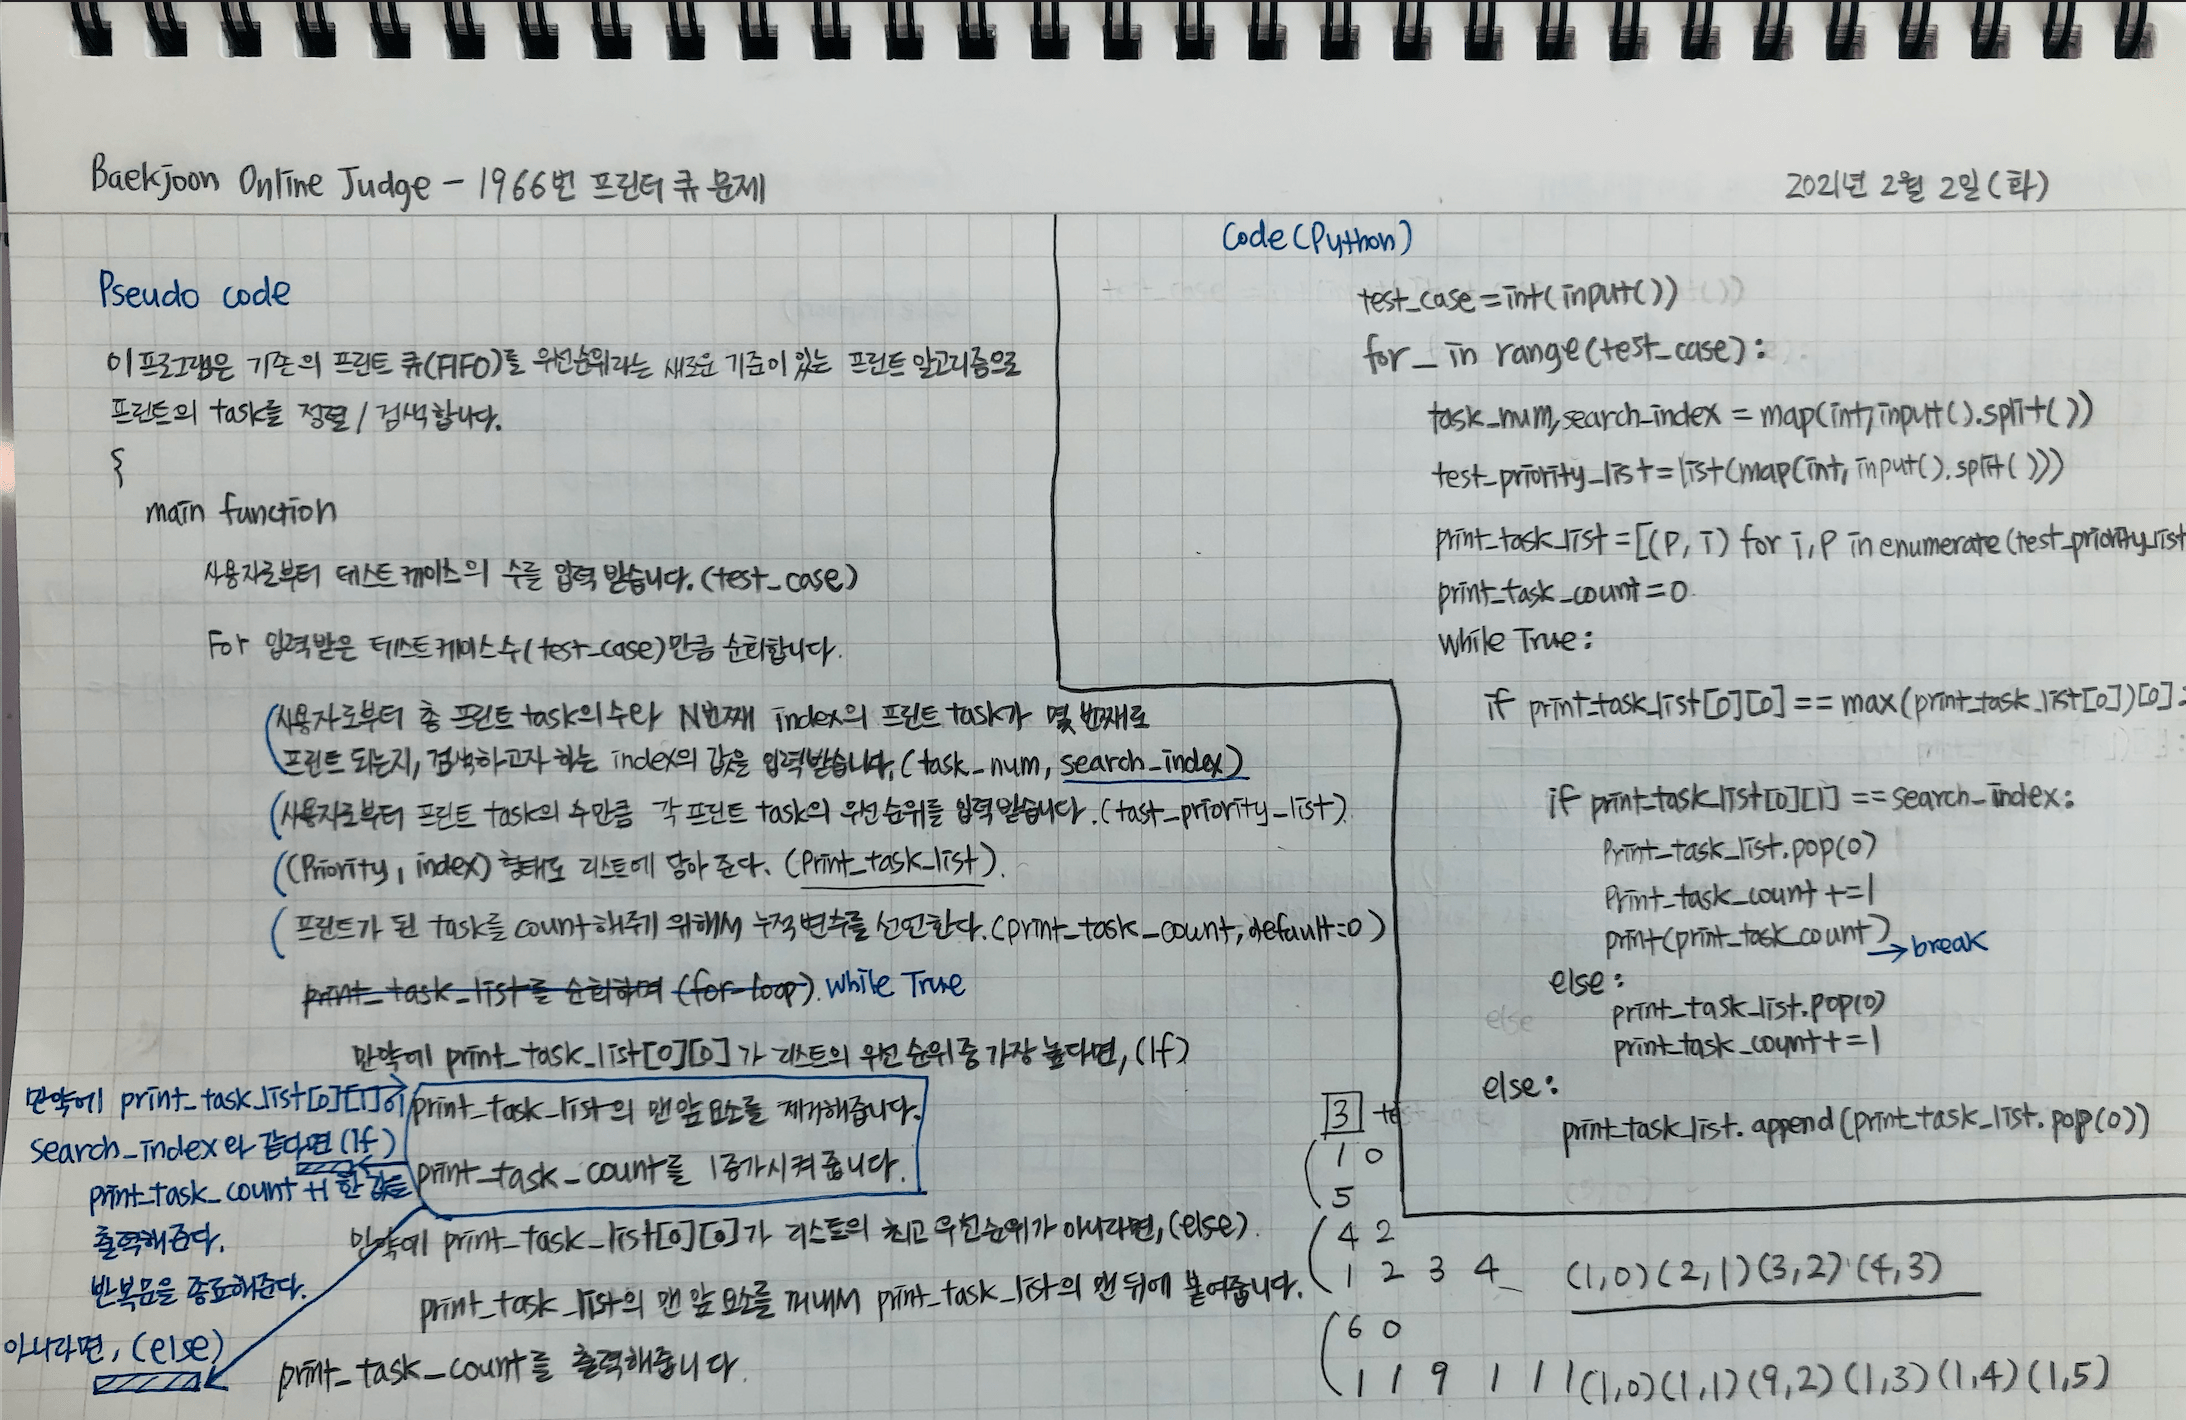 Baekjoon Online Judge - 1966번 프린터 큐 문제
2021년 2월 2일(화)
Pseudo code
이 프로그램은 기존의 프린트 큐(FIFO)를 우선순위라는 새로운 기준이 있는 프린트 알고리즘으로
프린트의 task를 정렬/검색합니다.
{
main function
사용자로부터 테스트케이스의 수를 입력 받습니다.(test_case)
For 입력받은 테스트케이스수(test_case)만큼 순회합니다.
(사용자로부터 총 프린트 task의 수와 N번째 index의 프린트 task가 몇 번째로
프린트 되는지, 검색하고자 하는 index의 값을 입력받습니다.(task_num, search_index)
(사용자로부터 프린트 task의 수만큼 각 프린트 task의 우선순위를 입력받습니다.(tast_priority_list).
((Priority, index) 형태로 리스트에 담아 준다. (Print_task_list).
(프린트가 된 task를 count해주기 위해서 누적변수를 선언한다.(print_task_count, default=0)
print_task_list를 순회하며 (for-loop). while True
만약에 print_task_list[0][0]가 리스트의 우선순위중 가장 높다면, (If)
print_task_list의 맨 앞 요소를 제거해줍니다.
print_task_count를 1증가시켜 줍니다.
만약에 print_task_list[0][1]이
search_index와 같다면 (If)
print_task_count +1 한 값을
출력해준다.
반복문을 종료해준다.
아니라면, (else)
만약에 print_task_list[0][0]가 리스트의 최고 우선순위가 아니라면, (else).
print_task_list의 맨 앞 요소를 꺼내서 print_task_list의 맨 뒤에 붙여줍니다.
print_task_count를 출력해줍니다.
Code(Python)
test_case=int(input())
for _ in range(test_case):
task_num,search_index = map(int,input().split())
test_priority_list=list(map(int,input().split()))
print_task_list=[(P, i) for i,P in enumerate(test_priority_list
print_task_count=0
while True:
if print_task_list[0][0] == max(print_task_list[0])[0]:
if print_task_list[0][1] == search_index:
Print_task_list.pop(0)
Print_task_count +=1
print(print_task_count)
→ break
else:
print_task_list.pop(0)
print_task_count+=1
else:
print_task_list.append(print_task_list.pop(0))
3 te
1 0
5
4 2
1 2 3 4 (1,0)(2,1)(3,2)(4,3)
6 0
1 1 9 1 1 1 (1,0)(1,1)(9,2)(1,3)(1,4)(1,5)